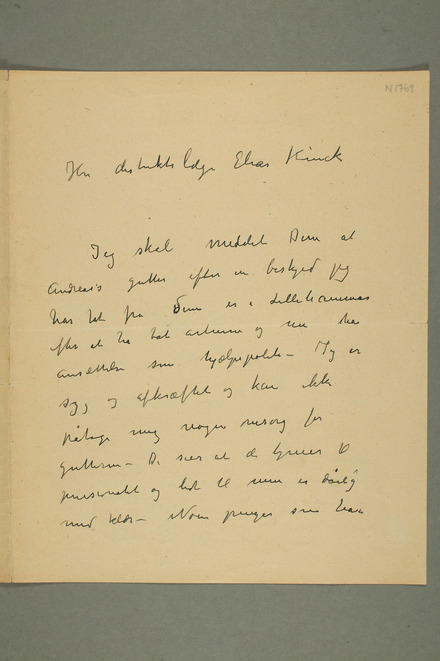 N1769
Hr distriktslæge Elias Kinck
Jeg skal meddele Dem at
Andreas's gutter efter en beskjed jeg
har fåt fra dem er i Lillehammer
efter at ha tat artium og nu ha
ansættelse som hjælpepoliti – Jeg er
syg og afkræftet og kan ikke
påtage mig nogen omsorg for
gutterne – De sier at de trænger til
og lidt til men er dårlig
med klær – Noen penger som kan